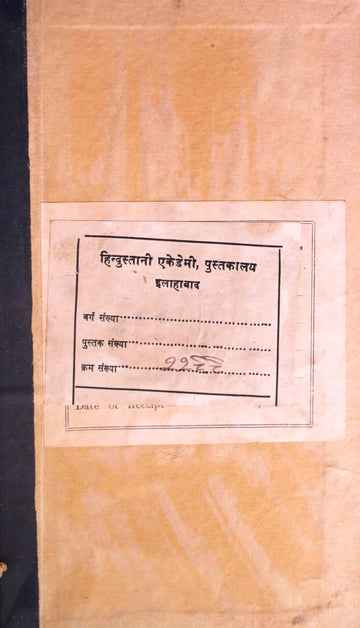 हिन्दुस्तानी एकेडेमी, पुस्तकालय
इलाहाबाद
वर्ग संख्या
पुस्तक संख्या
क्रम संख्या
Date of Receipt